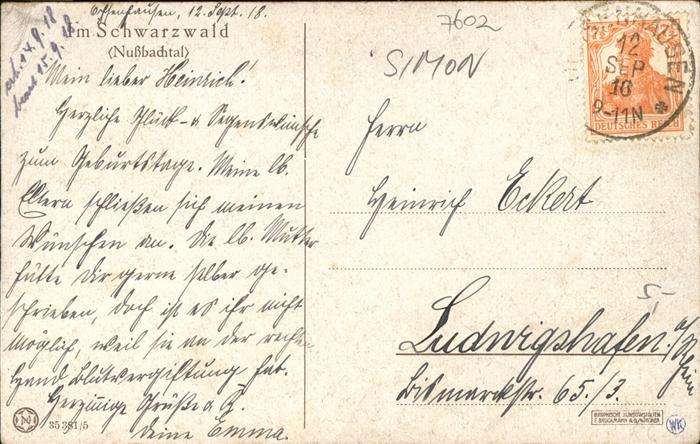 Ochsenhausen, 12. Sept. 18.
Im Schwarzwald
(Nußbachtal)
Mein lieber Heinrich!
Herzliche Glück- u Segenswünsche
zum Geburtstage. Meine lb.
Eltern schließen sich meinen
Wünschen an. Die lb. Mutter
hätte Dir gerne selber ge-
schrieben, doch ist es ihr nicht
möglich, weil sie an der rechten
Hand Blutvergiftung hat.
Herzinnige Grüße u
deine Emma.
35381/5
erh. 14.9.18
15.9.18
7602
SIMON
HAUSEN
12
SEP
9-11N
7½
DEUTSCHES REICH
Herrn
Heinrich Eckert
5,-
Ludwigshafen a/Rhein
Bismarckstr. 65/3.
WK